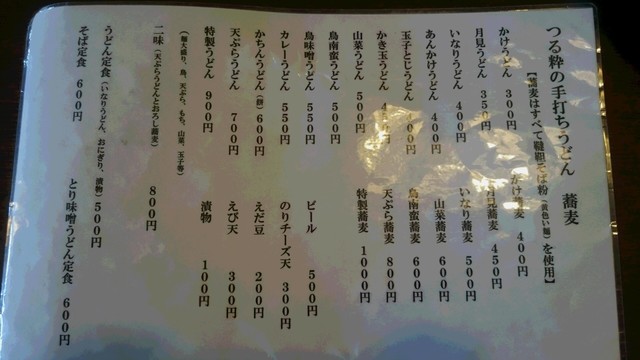 つる粋の手打ちうどん 蕎麦
【蕎麦はすべて韃靼そば粉(黄色い麺)を使用】
かけうどん 300円
かけ蕎麦 400円
月見うどん 350円
月見蕎麦 450円
いなりうどん 400円
いなり蕎麦 500円
あんかけうどん 400円
山菜蕎麦 600円
玉子とじうどん 400円
鳥南蛮蕎麦 600円
かき玉うどん
天ぷら蕎麦 800円
山菜うどん 500円
特製蕎麦 1000円
鳥南蛮うどん 500円
鳥味噌うどん 550円
ビール 500円
カレーうどん 550円
のりチーズ天 300円
かちんうどん(餅) 600円
えだ豆 200円
天ぷらうどん 700円
えび天 300円
特製うどん 900円
漬物 100円
(麺大盛り、鳥、天ぷら、もち、山菜、玉子等)
二味(天ぷらうどんとおろし蕎麦) 800円
うどん定食(いなりうどん、おにぎり、漬物) 500円
そば定食 600円
とり味噌うどん定食 600円